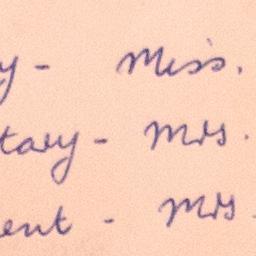 y - Miss.
tary - Mrs.
ent - Mrs.